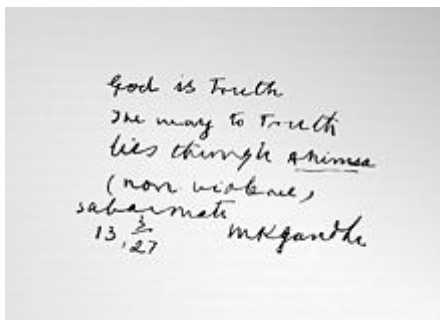 God is Truth
The way to Truth
lies through ahimsa
(non violence)
Sabarmati
13.3.27 MKGandhi